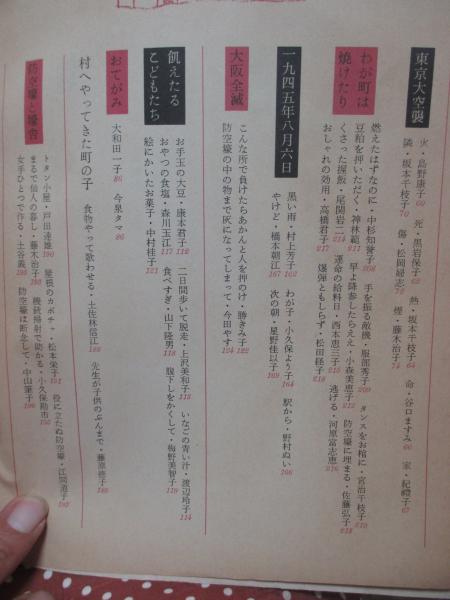 東京大空襲
火・島野康子 60 死・黒岩保子 62 熱・坂本千枝子 64 命・谷口ますみ 66 家・紀禮子 67
隣・坂本千枝子 70 傷・松岡綾志 72 煙・藤木治子 74
わが町は
焼けたり
燃えたはずなのに・中杉知誉子 208 手を振る敵機・服部秀子 209 タンスをお棺に・宮治千枝子 210
豆粕を押いただく・神林範 211 早よ降参したらええ・小森美恵子 212 防空壕に埋まる・佐藤弘子 213
くさった握飯・尾関岩二 214 運命の給料日・西本恵三子 215 逃げる・河原富志恵 216
おしゃれの効用・高橋君子 217 爆弾ともしらず・松田経子 218
一九四五年八月六日
黒い雨・村上芳子 161 わが子・小久保よう子 164 駅から・野村ぬい 166
やけど・橋本朝江 167 次の朝・星野佳以子 169
大阪全滅
こんな所で負けたらあかんと人を押のけ・勝きみ子 122
防空壕の中の物まで灰になってしまって・今田やす 124
飢えたる
こどもたち
お手玉の大豆・康本君子 112 二日間歩いて脱走・上沢美和子 113 いなごの青い汁・渡辺玲子 114
おやつの食塩・森川玉江 117 食べすぎ・山下隆男 118 腹下しをかくして・梅野美智子 119
絵にかいたお菓子・中村桂子 121
おてがみ
大和田一子 86 今泉タマ 96
村へやってきた町の子
食物やって歌わせる・土佐林信江 188 先生が子供のぶんまで・藤原徳子 189
防空壕と燈舎
トタン小屋・戸田達雄 190 屋根のカボチャ・松本栄子 191 役に立たぬ防空壕・江間道子 192
まるで仙人の暮し・藤木治子 193 機銃掃射で助かる・小久保勘市 195
女手ひとつで作る・土谷義 195 防空壕は断念して・中山筆子 196